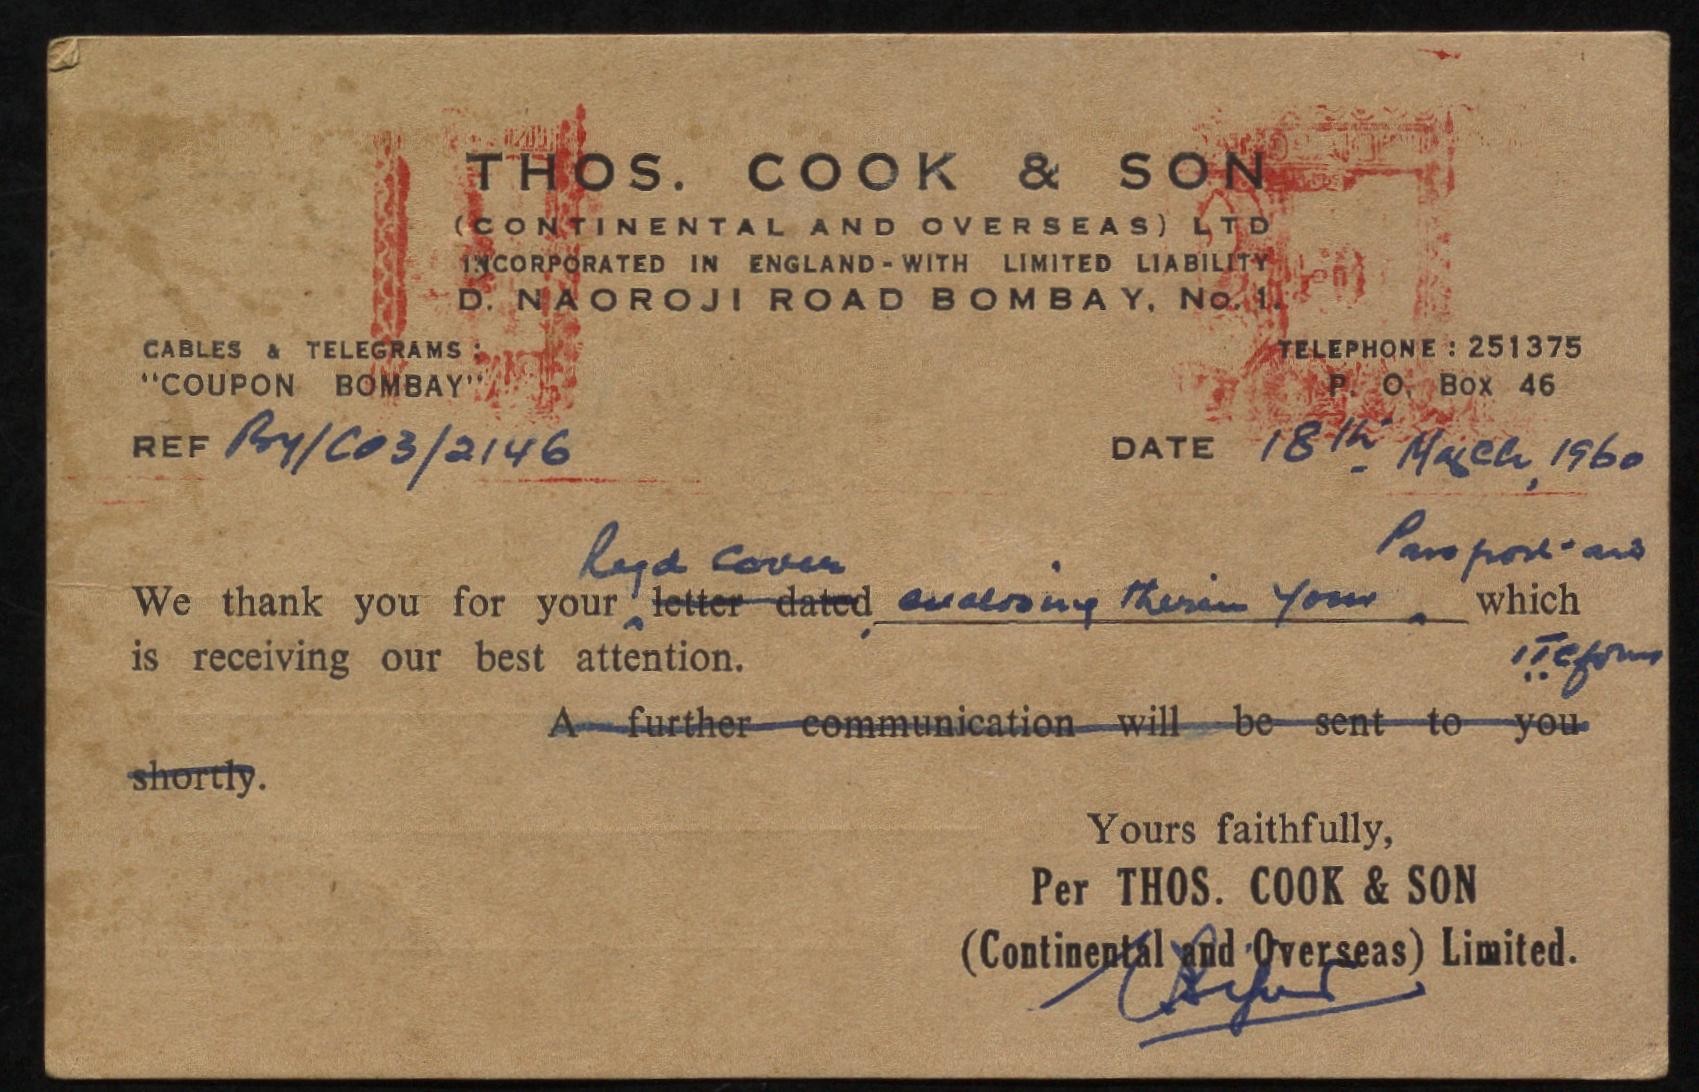 THOS. COOK & SON
(CONTINENTAL AND OVERSEAS) LTD
INCORPORATED IN ENGLAND - WITH LIMITED LIABILITY
D. NAOROJI ROAD BOMBAY, No. 1.
CABLES & TELEGRAMS : TELEPHONE : 251375
"COUPON BOMBAY" P. O. Box 46
REF By/C03/2146 DATE 18th March, 1960
Regd Cover Passport and
We thank you for your letter dated enclosing therein your which
is receiving our best attention. ITC form
A further communication will be sent to you
shortly.
Yours faithfully,
Per THOS. COOK & SON
(Continental and Overseas) Limited.